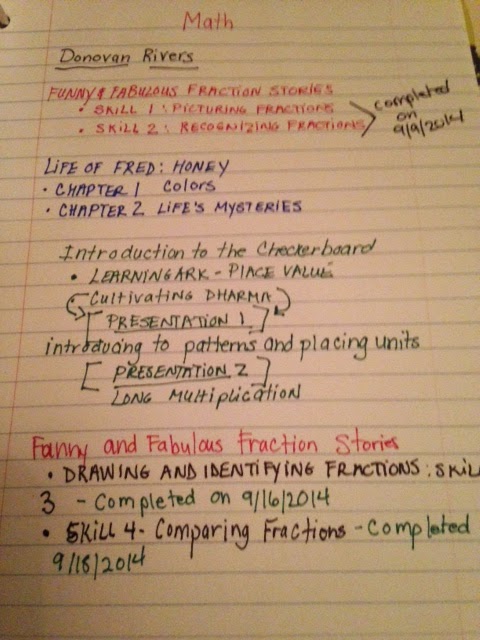 Math
Donovan Rivers
FUNNY & FABULOUS FRACTION STORIES
• SKILL 1: PICTURING FRACTIONS
• SKILL 2: RECOGNIZING FRACTIONS
completed
on
9/9/2014
LIFE OF FRED: HONEY
• CHAPTER 1 Colors
• CHAPTER 2 LIFE'S MYSTERIES
Introduction to the Checkerboard
• LEARNINGARK - PLACE VALUE
(Cultivating DHARMA)
[PRESENTATION 1]
introducing to patterns and placing units
[PRESENTATION 2]
LONG MULTIPLICATION
Funny and Fabulous Fraction Stories
• DRAWING AND IDENTIFYING FRACTIONS: SKILL
3 - Completed on 9/16/2014
• SKILL 4 - Comparing Fractions - Completed
9/18/2014